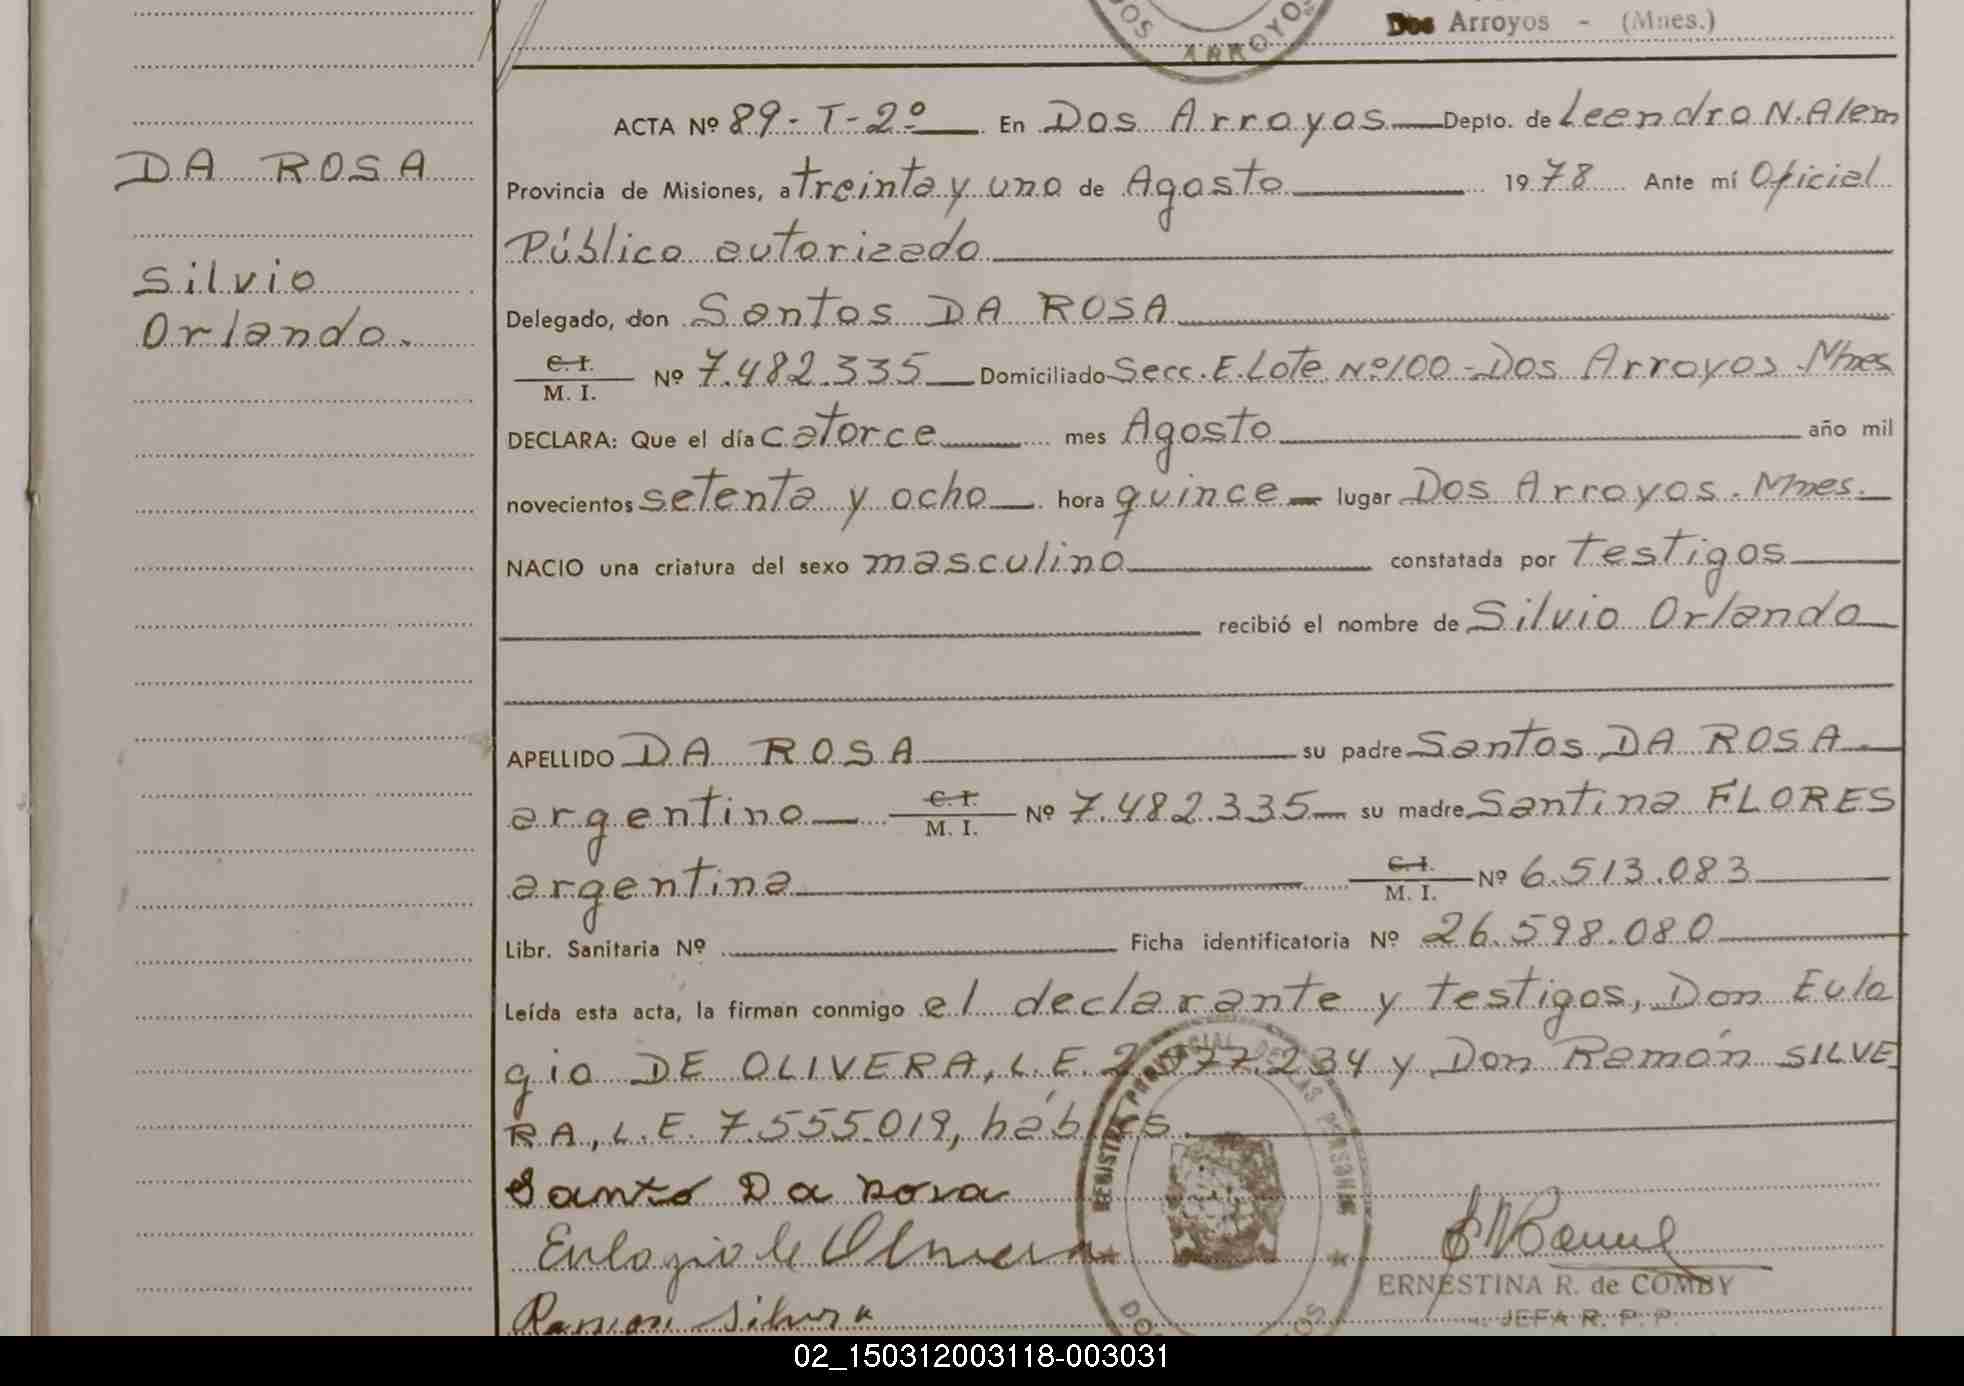 DOS ARROYOS
Dos Arroyos - (Mnes.)
ACTA Nº 89-T-2º En Dos Arroyos Depto. de Leandro N. Alem
DA ROSA
Provincia de Misiones, a treinta y uno de Agosto 1978 Ante mí Oficial
Público autorizado
Silvio
Orlando.
Delegado, don Santos DA ROSA
C. I.
M. I. Nº 7.482.335 Domiciliado Secc. E. Lote Nº 100 - Dos Arroyos Mnes
DECLARA: Que el día catorce mes Agosto año mil
novecientos setenta y ocho hora quince lugar Dos Arroyos. Mnes.
NACIO una criatura del sexo masculino constatada por testigos
recibió el nombre de Silvio Orlando
APELLIDO DA ROSA su padre Santos DA ROSA
argentino C. I. M. I. Nº 7.482.335 su madre Santina FLORES
argentina C. I. M. I. Nº 6.513.083
Libr. Sanitaria Nº Ficha identificatoria Nº 26.598.080
Leída esta acta, la firman conmigo el declarante y testigos, Don Eulo
gio DE OLIVERA, L.E. 2.077.234 y Don Ramón SILVE
RA, L.E. 7.555.019, hábiles.
REGISTRO PROVINCIAL DE LAS PERSONAS
Santo Da rosa
Eulogio de Olivera
ERNESTINA R. de COMBY
Ramon Silvera
JEFA R. P. P.
02_150312003118-003031